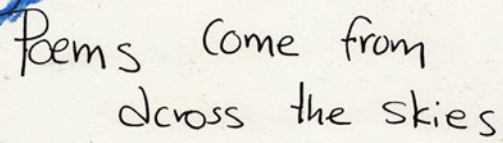 Poems come from
across the skies